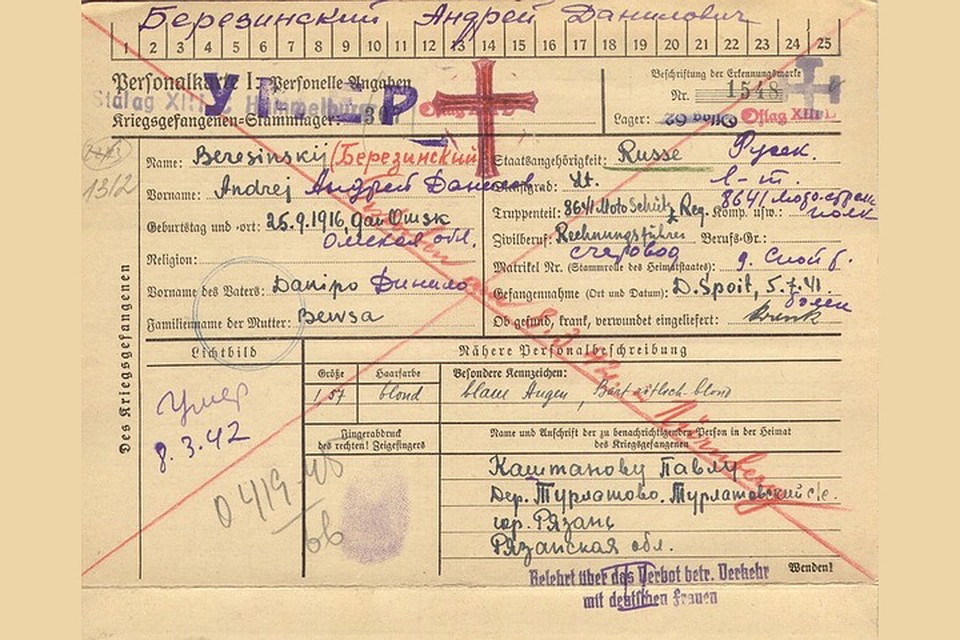 Березинский Андрей Данилович
1 2 3 4 5 6 7 8 9 10 11 12 13 14 15 16 17 18 19 20 21 22 23 24 25
Personalkarte I: Personelle Angaben
Beschriftung der Erkennungsmarke
Stalag XIII C Hammelburg
Nr. 1548
Kriegsgefangenen=Stammlager:
Lager: Oflag 62 Oflag XIII
Des Kriegsgefangenen
Name: Beresinskij (Березинский)
Staatsangehörigkeit: Russe Русск.
1312
Vorname: Andrej Андрей Данилов
Dienstgrad: Lt. л-т.
Truppenteil: 8641 Moto Schütz Reg. Komp. usw.: 8641 полк
Geburtstag und =ort: 25.9.1916, Omsk
Омская обл.
Zivilberuf: Rechnungsführer Berufs=Gr.:
счетовод
Religion:
Matrikel Nr. (Stammrolle des Heimatstaates):
Vorname des Vaters: Danipo Данило
Gefangennahme (Ort und Datum): D. Spoit, 5.7.41.
болен
Familienname der Mutter: Bewsa
Ob gesund, krank, verwundet eingeliefert: krank
8.3.42 in Nürnberg
Lichtbild
Nähere Personalbeschreibung
Größe Haarfarbe Besondere Kennzeichen:
1,57 blond blaue Augen, Bart rötlich-blond
Умер
8.3.42
Fingerabdruck
des rechten! Zeigefingers
Name und Anschrift der zu benachrichtigenden Person in der Heimat
des Kriegsgefangenen
Каштанову Павлу
Дер. Турлатово. Турлатовский с/с.
гор. Рязань
Рязанская обл.
Wenden!
Belehrt über das Verbot betr. Verkehr
mit deutschen Frauen